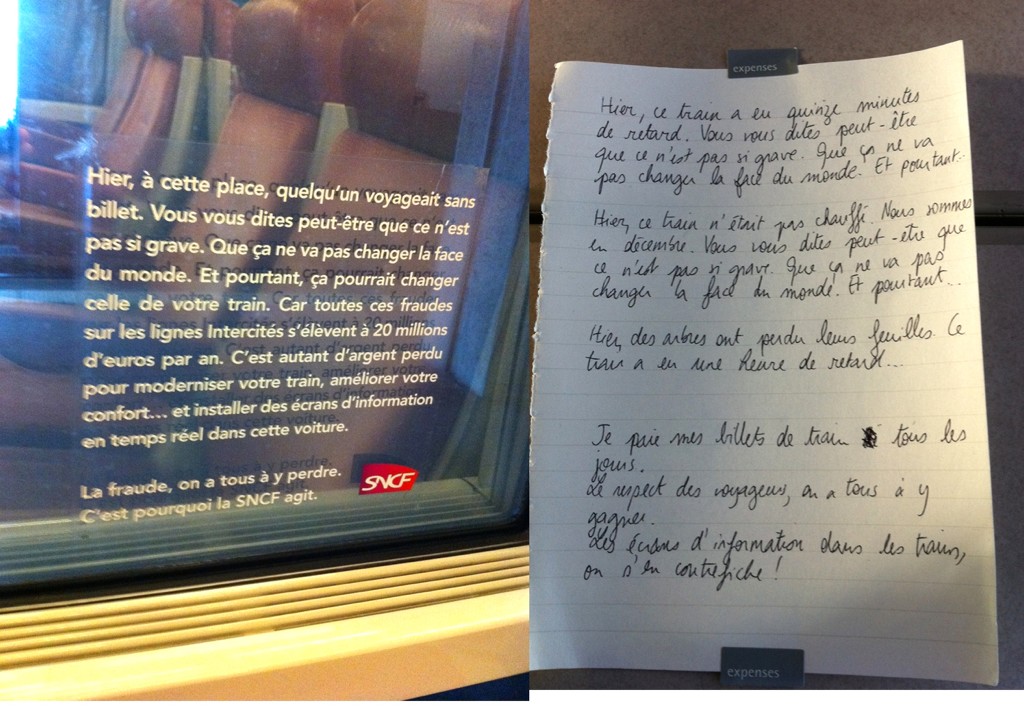 Hier, à cette place, quelqu'un voyageait sans
billet. Vous vous dites peut-être que ce n'est
pas si grave. Que ça ne va pas changer la face
du monde. Et pourtant, ça pourrait changer
celle de votre train. Car toutes ces fraudes
sur les lignes Intercités s'élèvent à 20 millions
d'euros par an. C'est autant d'argent perdu
pour moderniser votre train, améliorer votre
confort... et installer des écrans d'information
en temps réel dans cette voiture.
La fraude, on a tous à y perdre.
C'est pourquoi la SNCF agit.
SNCF
expenses
Hier, ce train a eu quinze minutes
de retard. Vous vous dites peut-être
que ce n'est pas si grave. Que ça ne va
pas changer la face du monde. Et pourtant...
Hier, ce train n'était pas chauffé. Nous sommes
en décembre. Vous vous dites peut-être que
ce n'est pas si grave. Que ça ne va pas
changer la face du monde. Et pourtant...
Hier, des arbres ont perdu leurs feuilles. Ce
train a eu une heure de retard...
Je paie mes billets de train tous les
jours.
Le respect des voyageurs, on a tous à y
gagner.
Les écrans d'information dans les trains,
on s'en contrefiche !
expenses